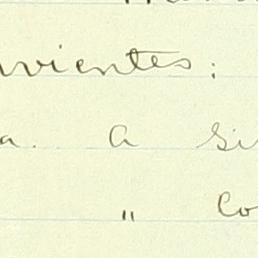 vientes:
a. A Si
" Co